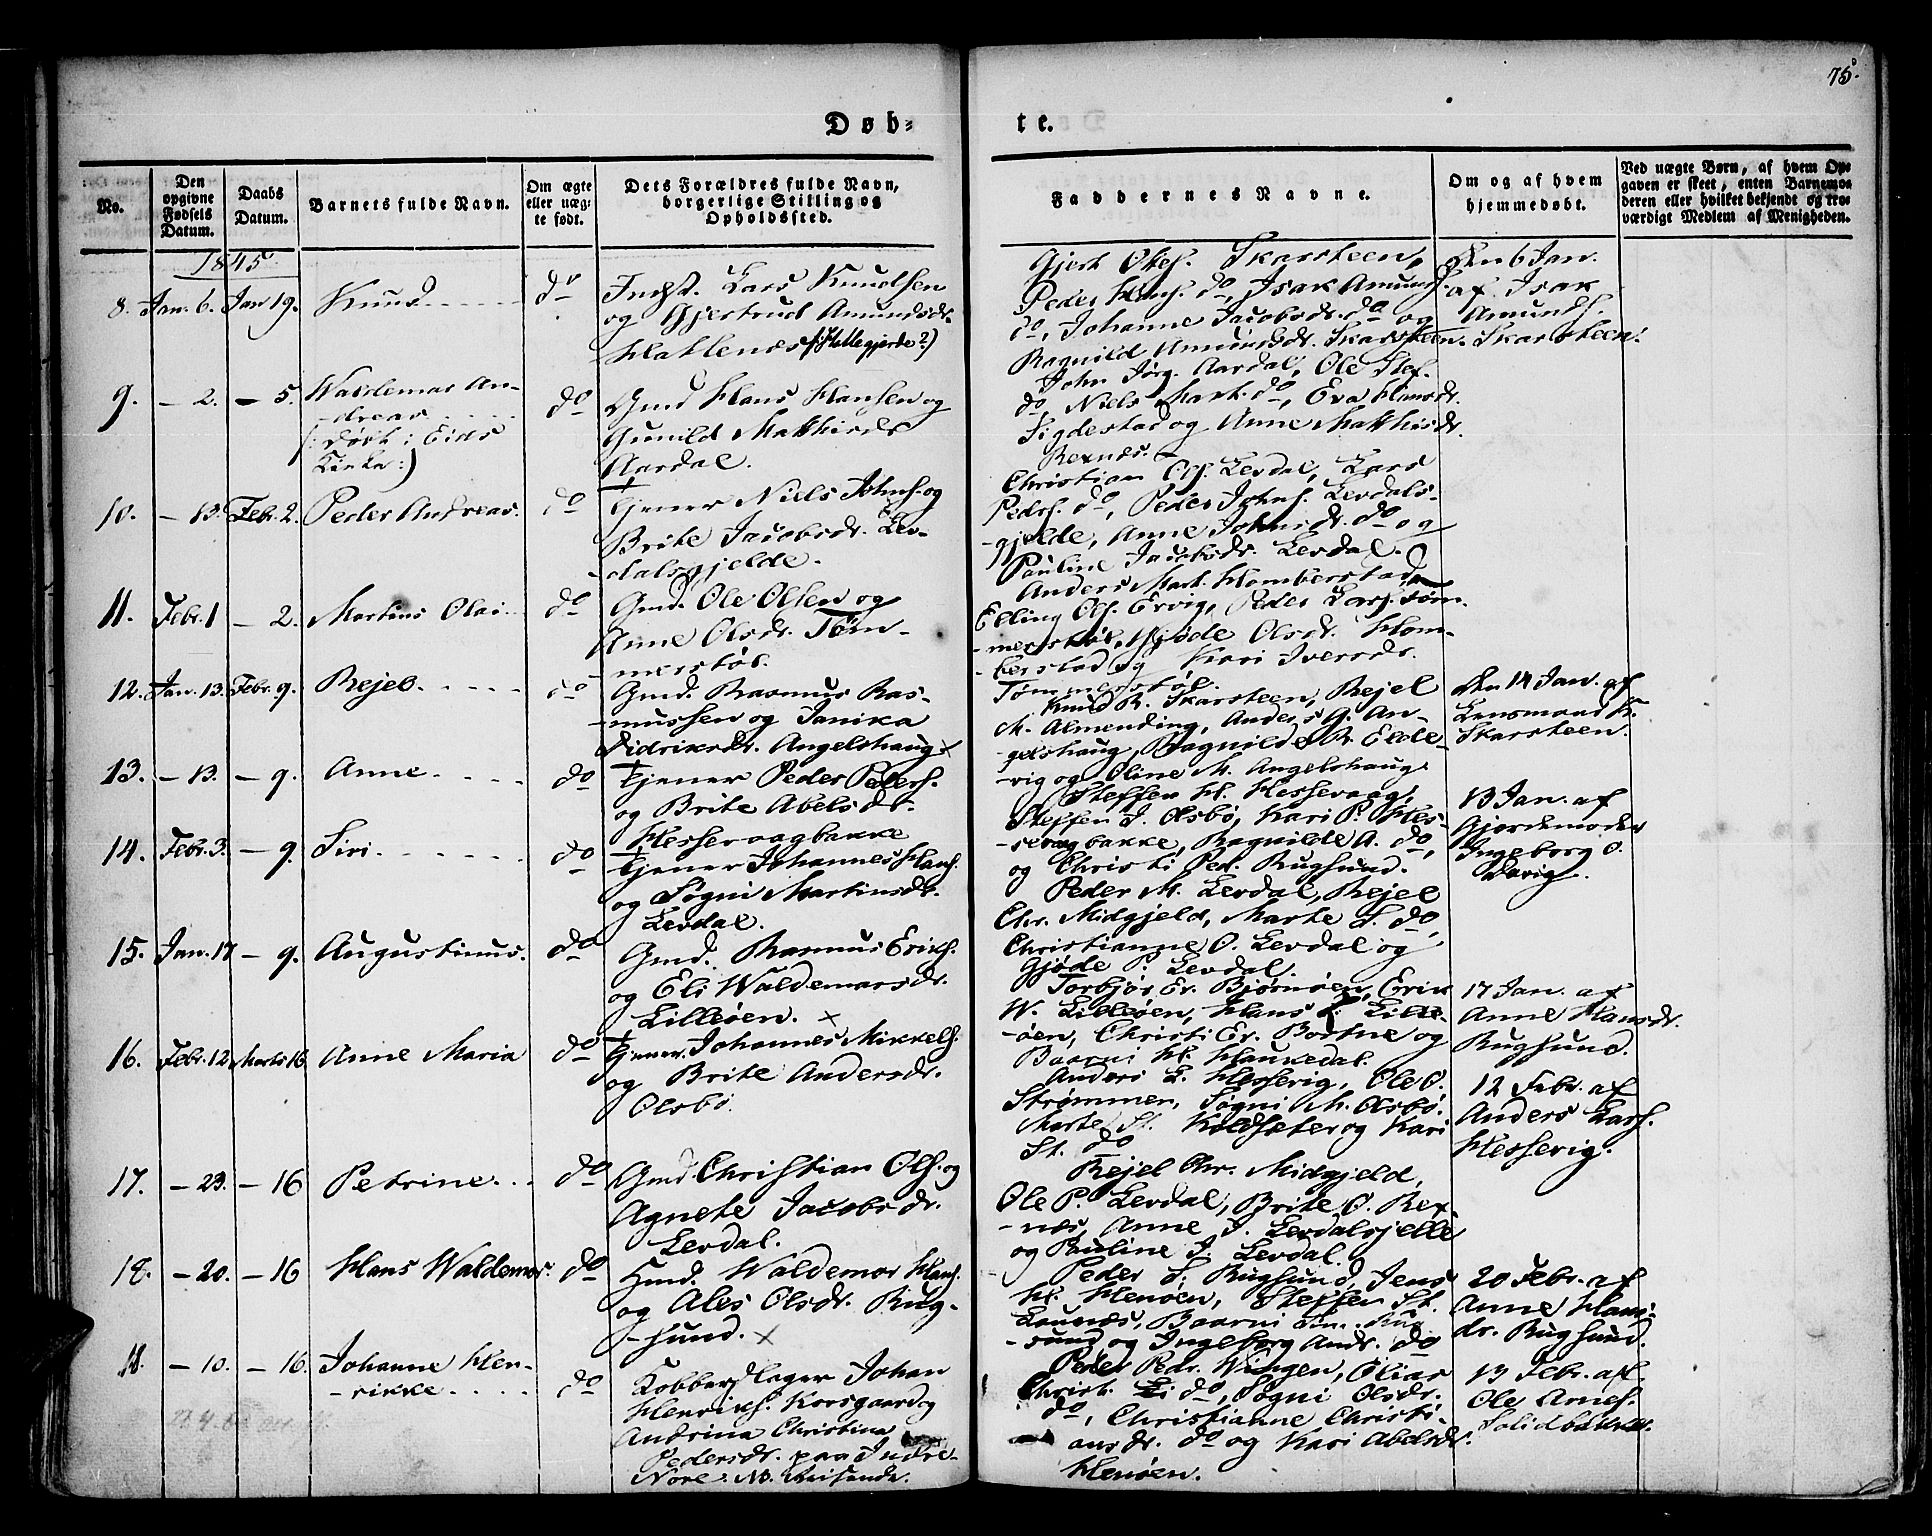 75.
Døb-
te.
No.
Den opgivne Fødsels Datum.
Daabs Datum.
Barnets fulde Navn.
Om ægte eller uægte født.
Dets Forældres fulde Navn, borgerlige Stilling og Opholdssted.
Faddernes Navne.
Om og af hvem hjemmedøbt.
Ved uægte Børn, af hvem Opgaven er skeet, enten Barnemoderen eller hvilket bekjendt og troværdigt Medlem af Menigheden.
1845
8. Jan. 6. Jan 19. Knud
do
Indst. Lars Knudsen
og Gjertrud Amundsdr.
Haklenes (: Hellegjerde?)
Gjert Olss. Skarsteen,
Peder Hans. do, Isak Amunds.
do, Johanne Jacobsdr. do og
Ragnild Amundsdr. Skarsteen.
Den 6 Jan.
af Isak
Amunds.
Skarsteen.
9. — 2. — 5. Waldemar An-
-dreas
(: Døbt i Eids
Kirke:)
do
Gmd Hans Hansen og
Gunild Matthisdr
Aardal.
John Jørg. Aardal, Ole Stef.
do, Niels Mark. do, Eva Hansdr.
Sigdestad og Anne Matthisdr.
Rexnæs.
10. — 13. Febr. 2. Peder Andreas.
do
Tjener Niels Johns. og
Brite Jacobsdr. Lev-
-dalsgjelde.
Christian Ols. Levdal, Lars
Peders. do, Peder Johns. Levdals-
-gjelde, Anne Johnsdr. do og
Pauline Jacobsdr. Levdal.
11. Febr. 1 — 2. Martinus Olai
do
Gmd. Ole Olsen og
Anne Olsdr. Tøm-
-merstøl.
Anders Mart. Homberstad,
Elling Ols. Ervig, Peder Lars. Tøm-
-merstøl, Gjøde Olsdr. Hom-
berstad og Kari Iversdr.
Tømmerstøl.
12. Jan. 13. Febr. 9. Rejel
do
Gmd. Rasmus Ras-
-mussen og Janika
Didriksdr. Angelshaug x
Knud R. Skarsteen, Rejel
M. Almending, Anders G. An-
gelshaug, Ragnilde R. Elde-
-vig og Oline M. Angelshaug
Den 14 Jan. af
Lensmand K.
Skarsteen.
13. — 13. — 9. Anne
do
Tjener Peder Peders.
og Brite Abelsdr.
Hessevaagbakke
Steffen H. Hessevaag,
Steffen J. Olsbø, Kari P. Hes-
-sevagbakke, Ragnilde A. do,
og Christi Ped. Rugsund.
13 Jan. af
Gjordemoder
Ingeborg O.
Davig.
14. Febr. 3. — 9. Siri
do
Tjener Johannes Hans.
og Søgni Martinsdr.
Levdal.
Peder M. Levdal, Rejel
Chr. Midgjeld, Marte S. do,
Christianne O. Levdal og
Gjøde P. Levdal.
15. Jan. 17 — 9. Augustinus.
do
Gmd. Rasmus Eriks.
og Eli Waldemarsdr.
Lilleøen. x
Torbjør Er. Bjørnøen, Erik
W. Lilleøen, Hans L. Lille-
-øen, Christi Er. Bortne og
Baarni H. Haukedal.
17 Jan. af
Anne Hansdr.
Rugsund.
16. Febr. 12 Marts 16. Anne Maria
do
Tjener. Johannes Mikkels.
og Brite Andersdr.
Olsbø.
Anders L. Hessevig, Ole O.
Strømmen, Søgni M. Olsbø.
Marte St. Koldsæter og Kari
St. do
12 Febr. af
Anders Lars.
Hessevig.
17. — 23. — 16 Petrine.
do
Gmd Christian Ols. og
Agnete Jacobsdr.
Levdal.
Rejel Chr. Midgjeld,
Ole P. Levdal, Brite O. Rex-
-næs, Anne J. Levdalsgjelde
og Pauline J. Levdal.
18. — 20. — 16 Hans Waldemar.
do
Hmd. Waldemor Hans.
og Ales Olsdr. Rug-
-sund. x
Peder S. Rugsund, Jens
H. Henøen, Steffen St.
Launæs, Baarni Rug-
-sund og Ingeborg Andr. do
20 Febr. af
Anne Hans-
dr. Rugsund.
— 10. — 16. Johanne Hen-
-rikke
do
Kobberslager Johan
Henriks. Korsgaard og
Andrina Christina
Pedersdr. paa Indre-
Nore. NB. Reisende.
Peder Pedr. Wingen, Elias
Christ. do, Søgni Olsdr.
do, Christianne Christi-
ansdr. do og Kari Abelsdr.
Henøen.
13 Febr. af
Ole Arnes.